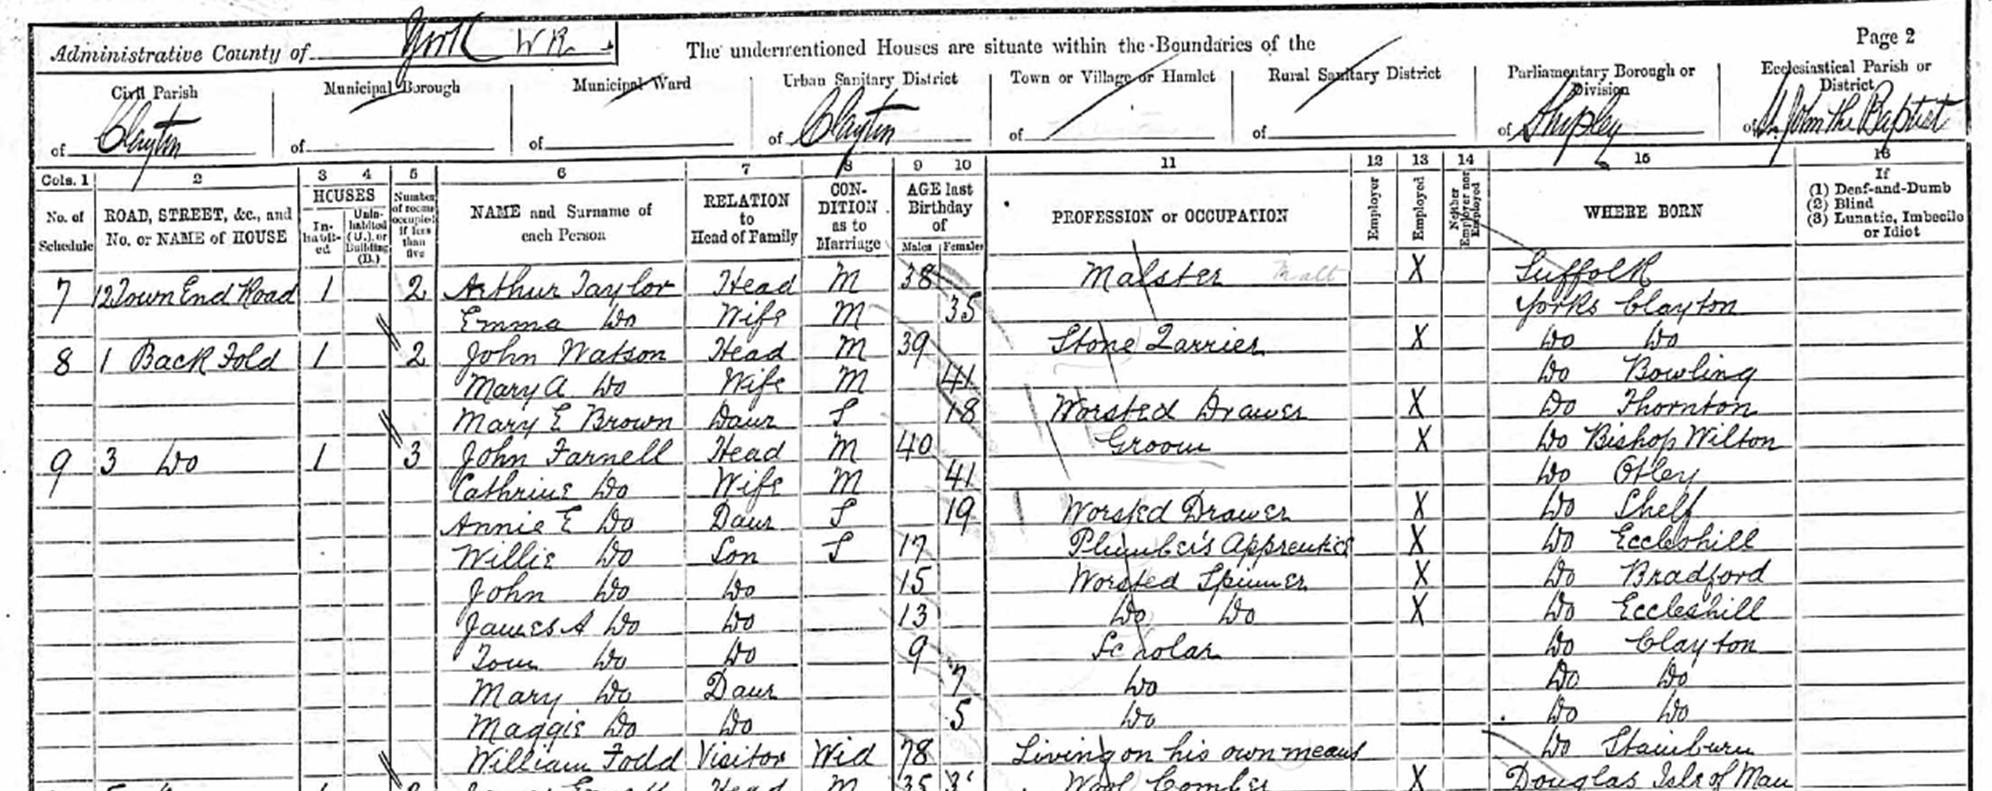 Administrative County of York W R
The undermentioned Houses are situate within the Boundaries of the
Page 2
Civil Parish of Clayton
Municipal Borough of
Municipal Ward of
Urban Sanitary District of Clayton
Town or Village or Hamlet of
Rural Sanitary District of
Parliamentary Borough or Division of Shipley
Ecclesiastical Parish or District of St. John the Baptist
Cols. 1 2 3 4 5 6 7 8 9 10 11 12 13 14 15 16
No. of Schedule
ROAD, STREET, &c., and No. or NAME of HOUSE
HOUSES
In-habit-ed
Unin-habited (U.), or Building (B.)
Number of rooms occupied if less than five
NAME and Surname of each Person
RELATION to Head of Family
CON-DITION as to Marriage
AGE last Birthday of
Males Females
PROFESSION or OCCUPATION
Employer
Employed
Neither Employer nor Employed
WHERE BORN
If (1) Deaf-and-Dumb (2) Blind (3) Lunatic, Imbecile or Idiot
7 12 Town End Road 1 2 Arthur Taylor Head M 38 Malster Malt X Suffolk
Emma Do Wife M 35 Yorks Clayton
8 1 Back Fold 1 2 John Watson Head M 39 Stone Quarrier X Do Do
Mary A Do Wife M 41 Do Bowling
Mary E Brown Daur S 18 Worsted Drawer X Do Thornton
9 3 Do 1 3 John Farnell Head M 40 Groom X Do Bishop Wilton
Cathrine Do Wife M 41 Do Otley
Annie E Do Daur S 19 Worsted Drawer X Do Shelf
Willie Do Son S 17 Plumber's Apprentice X Do Eccleshill
John Do Do 15 Worsted Spinner X Do Bradford
James A Do Do 13 Do Do X Do Eccleshill
Tom Do Do 9 Scholar Do Clayton
Mary Do Daur 7 Do Do Do
Maggie Do Do 5 Do Do Do
William Todd Visitor Wid 78 Living on his own means Do Stainburn
Head M 35 Wool Comber X Douglas Isle of Man